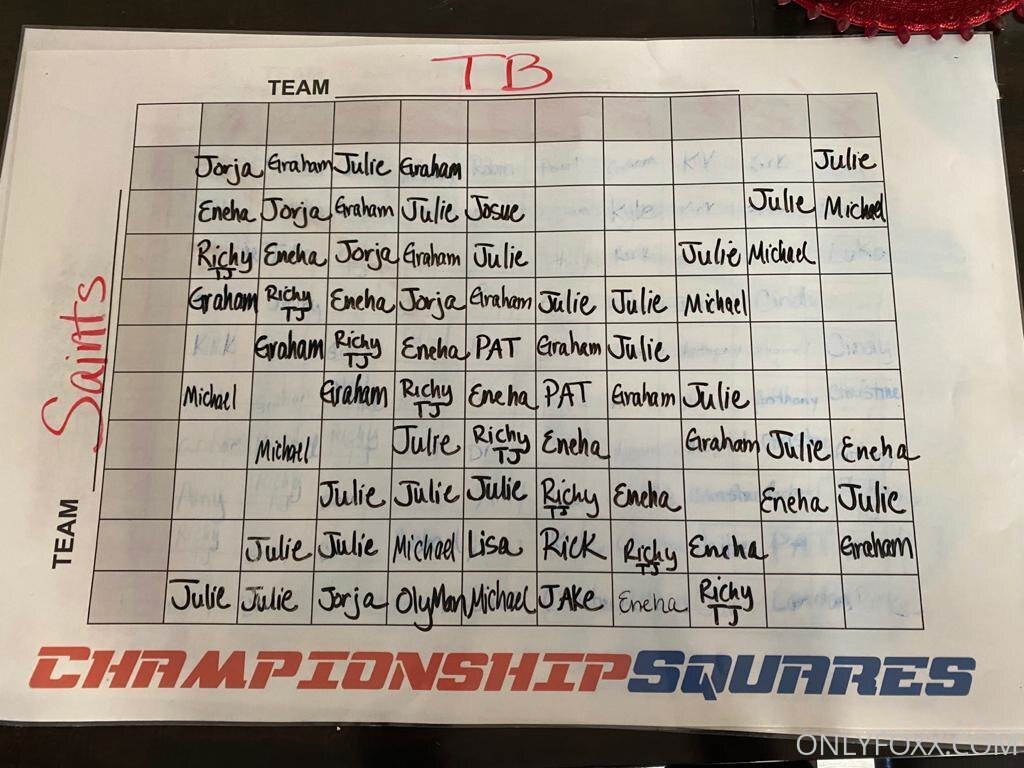 TEAM TB
Jorja Graham Julie Graham Julie
Eneha Jorja Graham Julie Josue Julie Michael
Richy TJ Eneha Jorja Graham Julie Julie Michael
Graham Richy TJ Eneha Jorja Graham Julie Julie Michael
Graham Richy TJ Eneha PAT Graham Julie
Michael Graham Richy TJ Eneha PAT Graham Julie
Michael Julie Richy TJ Eneha Graham Julie Eneha
Julie Julie Julie Richy TJ Eneha Eneha Julie
Julie Julie Michael Lisa Rick Richy TJ Eneha Graham
Julie Julie Jorja OlyMan Michael JAKe Eneha Richy TJ
TEAM Saints
CHAMPIONSHIPSQUARES
ONLYFOXX.COM